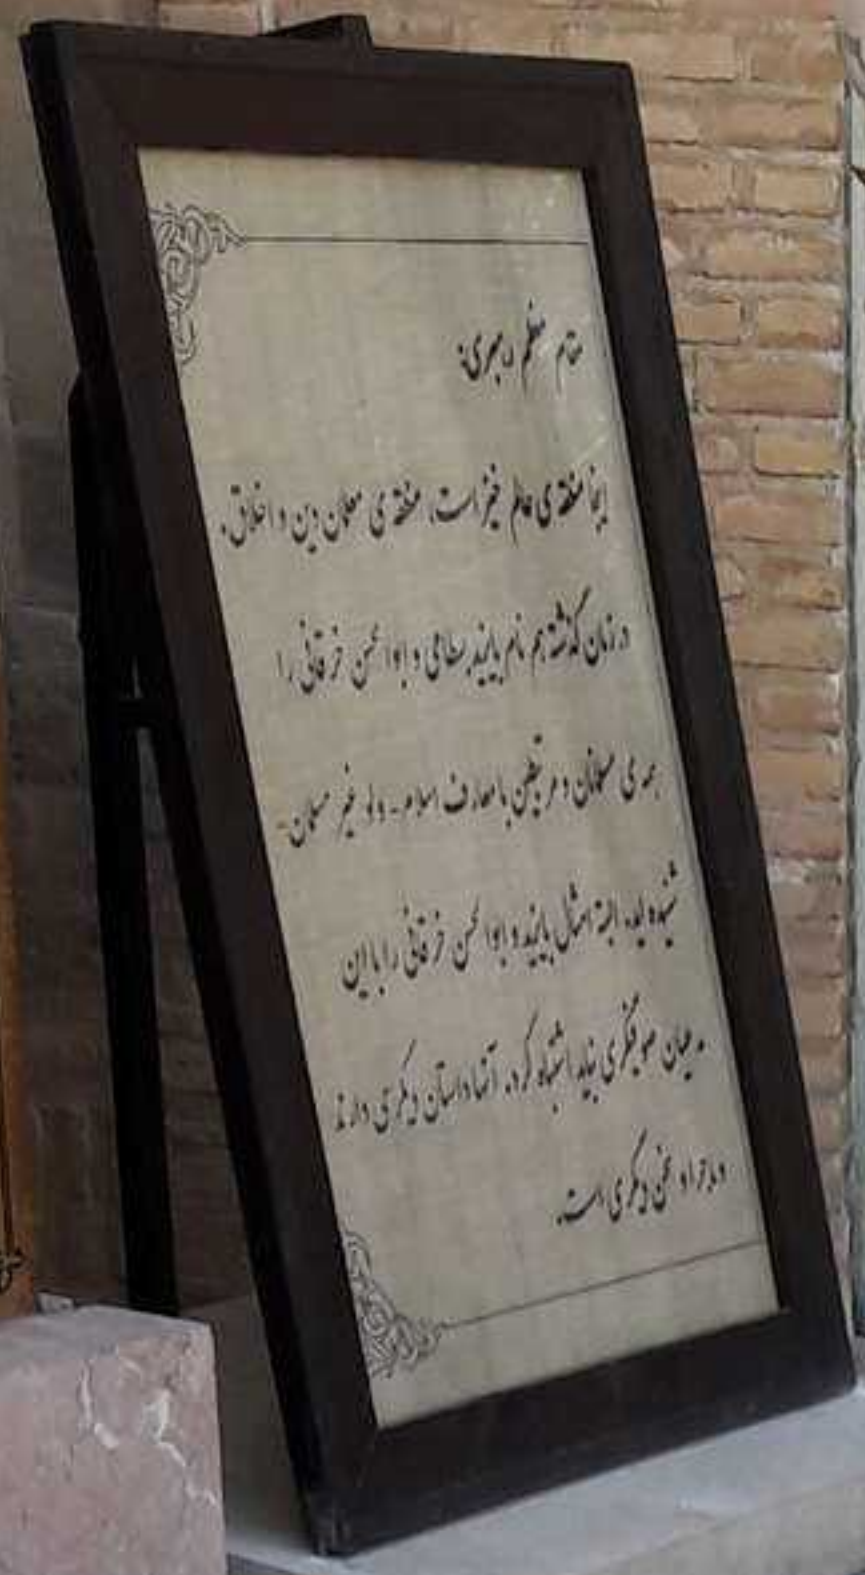 مقام معظم رهبری:
اینجا منطقه‌ی عالم خیز است، منطقه‌ی معلمان دین و اخلاق.
در زمان گذشته هم نام بایزید بسطامی و ابوالحسن خرقانی را
همه‌ی مسلمانان و مرتبطین با معارف اسلام - ولو غیر مسلمان -
شنیده‌اند. البته امثال بایزید و ابوالحسن خرقانی را با این
مدعیان صوفیگری نباید اشتباه کرد. آنها داستان دیگری دارند
و ماجرا و سخن دیگری است.